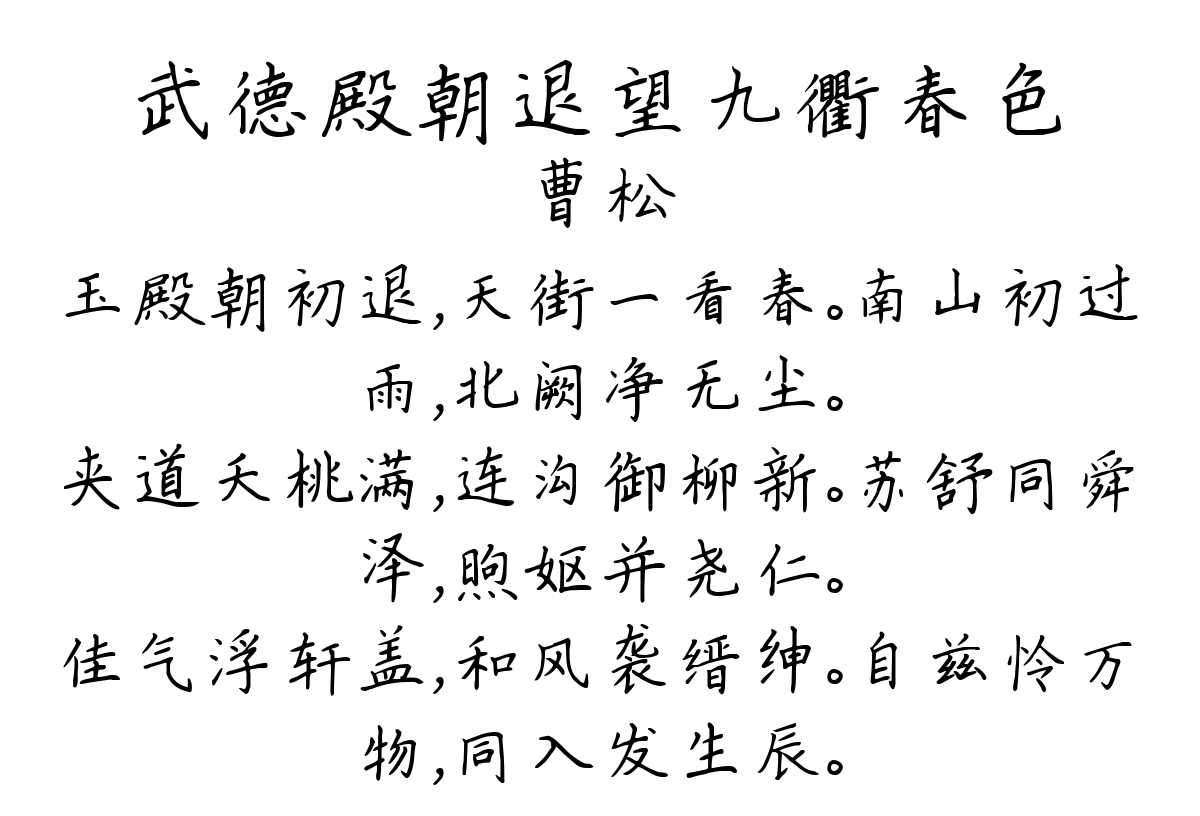 武德殿朝退望九衢春色
曹松
玉殿朝初退,天街一看春。南山初过
雨,北阙净无尘。
夹道夭桃满,连沟御柳新。苏舒同舜
泽,煦妪并尧仁。
佳气浮轩盖,和风袭缙绅。自兹怜万
物,同入发生辰。